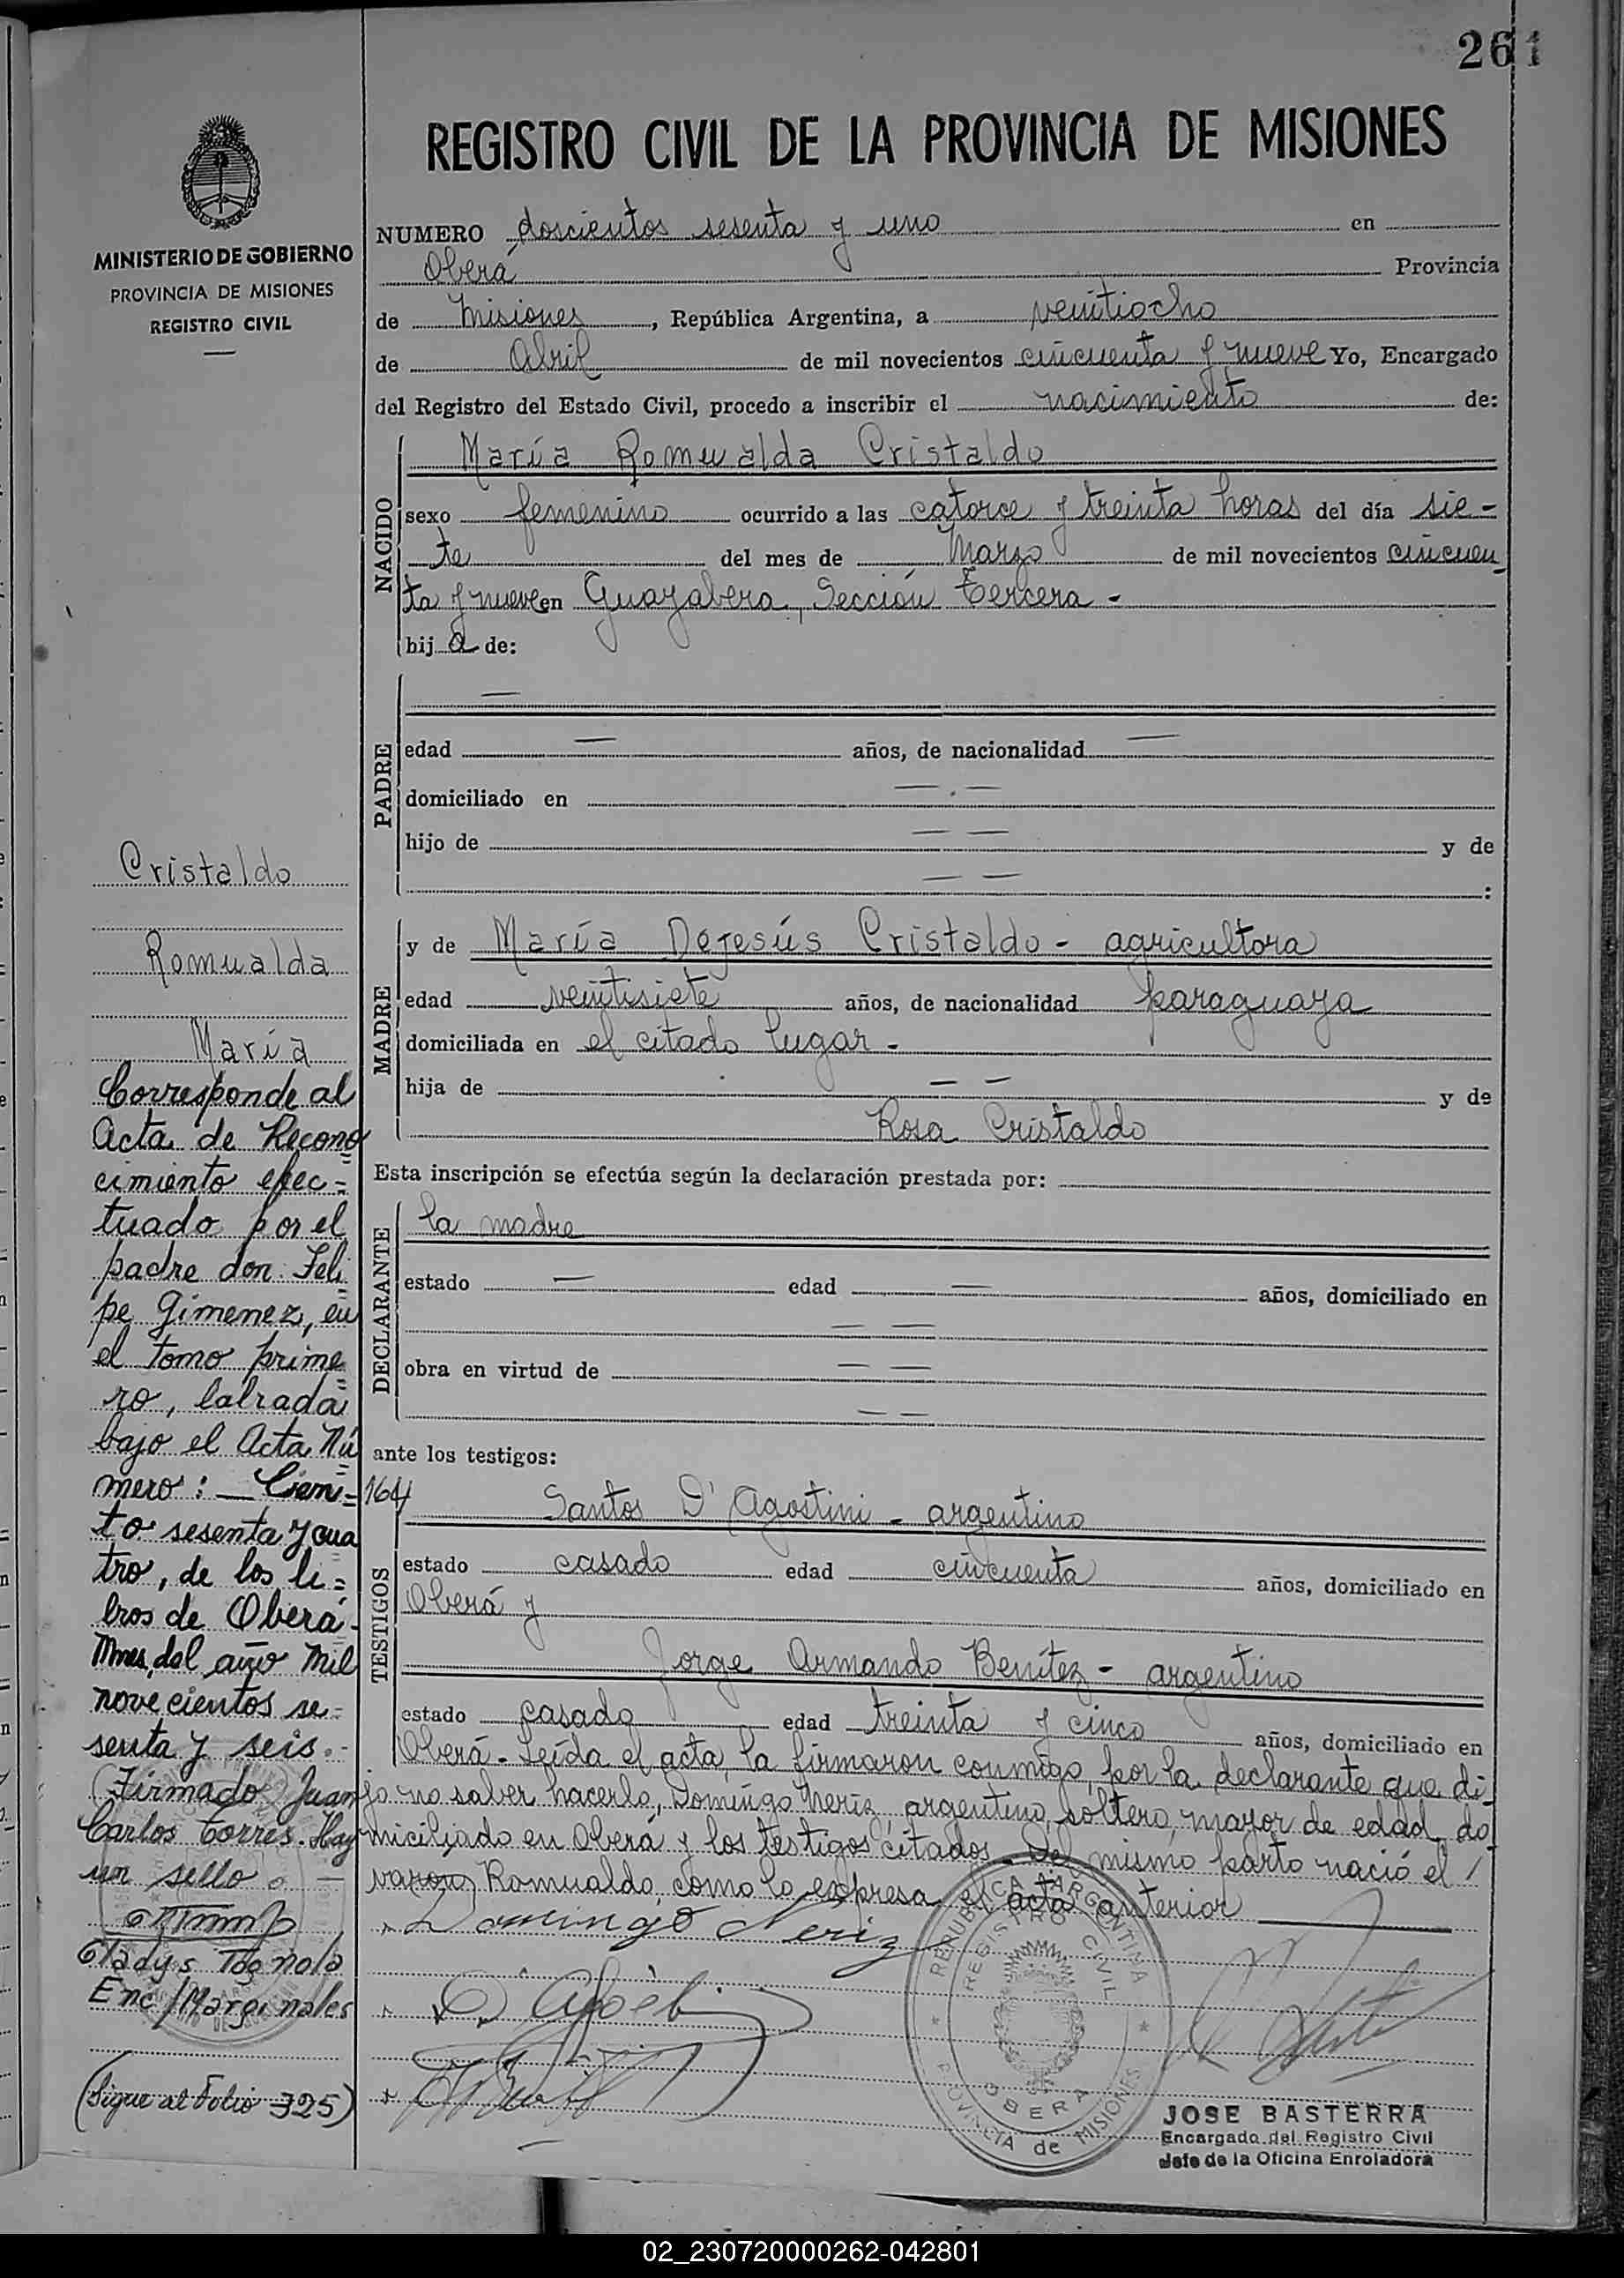 261
REGISTRO CIVIL DE LA PROVINCIA DE MISIONES
MINISTERIO DE GOBIERNO
PROVINCIA DE MISIONES
REGISTRO CIVIL
NUMERO doscientos sesenta y uno en
Oberá Provincia
de Misiones, República Argentina, a veintiocho
de Abril de mil novecientos cincuenta y nueve Yo, Encargado
del Registro del Estado Civil, procedo a inscribir el nacimiento de:
NACIDO
María Romualda Cristaldo
sexo femenino ocurrido a las catorce y treinta horas del día sie-
te del mes de Marzo de mil novecientos cincuen
ta y nueve en Guayabera, Sección Tercera -
hija de:
PADRE
—
edad — años, de nacionalidad —
domiciliado en — . —
hijo de — — y de
— — :
MADRE
y de María Dejesús Cristaldo - agricultora
edad veintisiete años, de nacionalidad paraguaya
domiciliada en el citado lugar -
hija de — — y de
Rosa Cristaldo
Esta inscripción se efectúa según la declaración prestada por:
DECLARANTE
la madre
estado — edad — años, domiciliado en
— —
obra en virtud de — —
— —
ante los testigos:
TESTIGOS
Santos D'Agostini - argentino
estado casado edad cincuenta años, domiciliado en
Oberá y
Jorge Armando Benítez - argentino
estado casado edad treinta y cinco años, domiciliado en
Oberá - Leída el acta, la firmaron conmigo, por la declarante que di-
jo no saber hacerlo, Domingo Neriz, argentino, soltero, mayor de edad, do
miciliado en Oberá y los testigos citados - Del mismo parto nació el
varon Romualdo, como lo expresa el acta anterior
Domingo Neriz
Cristaldo
Romualda
María
Corresponde al
Acta de Recono=
cimiento efec=
tuado por el
padre don Feli=
pe Gimenez, en
el tomo prime=
ro, labrada
bajo el Acta Nú=
mero: — Cien= 164
to sesenta y cua=
tro, de los li=
bros de Oberá -
Mnes, del año mil
novecientos se=
senta y seis.-
(Firmado Juan
Carlos Torres. Hay
un sello. —
Gladys Tognola
Enc/Marginales
(Sigue al Folio 325)
REPUBLICA ARGENTINA
REGISTRO CIVIL
OBERA
PROVINCIA de MISIONES
JOSE BASTERRA
Encargado del Registro Civil
Jefe de la Oficina Enroladora
02_230720000262-042801